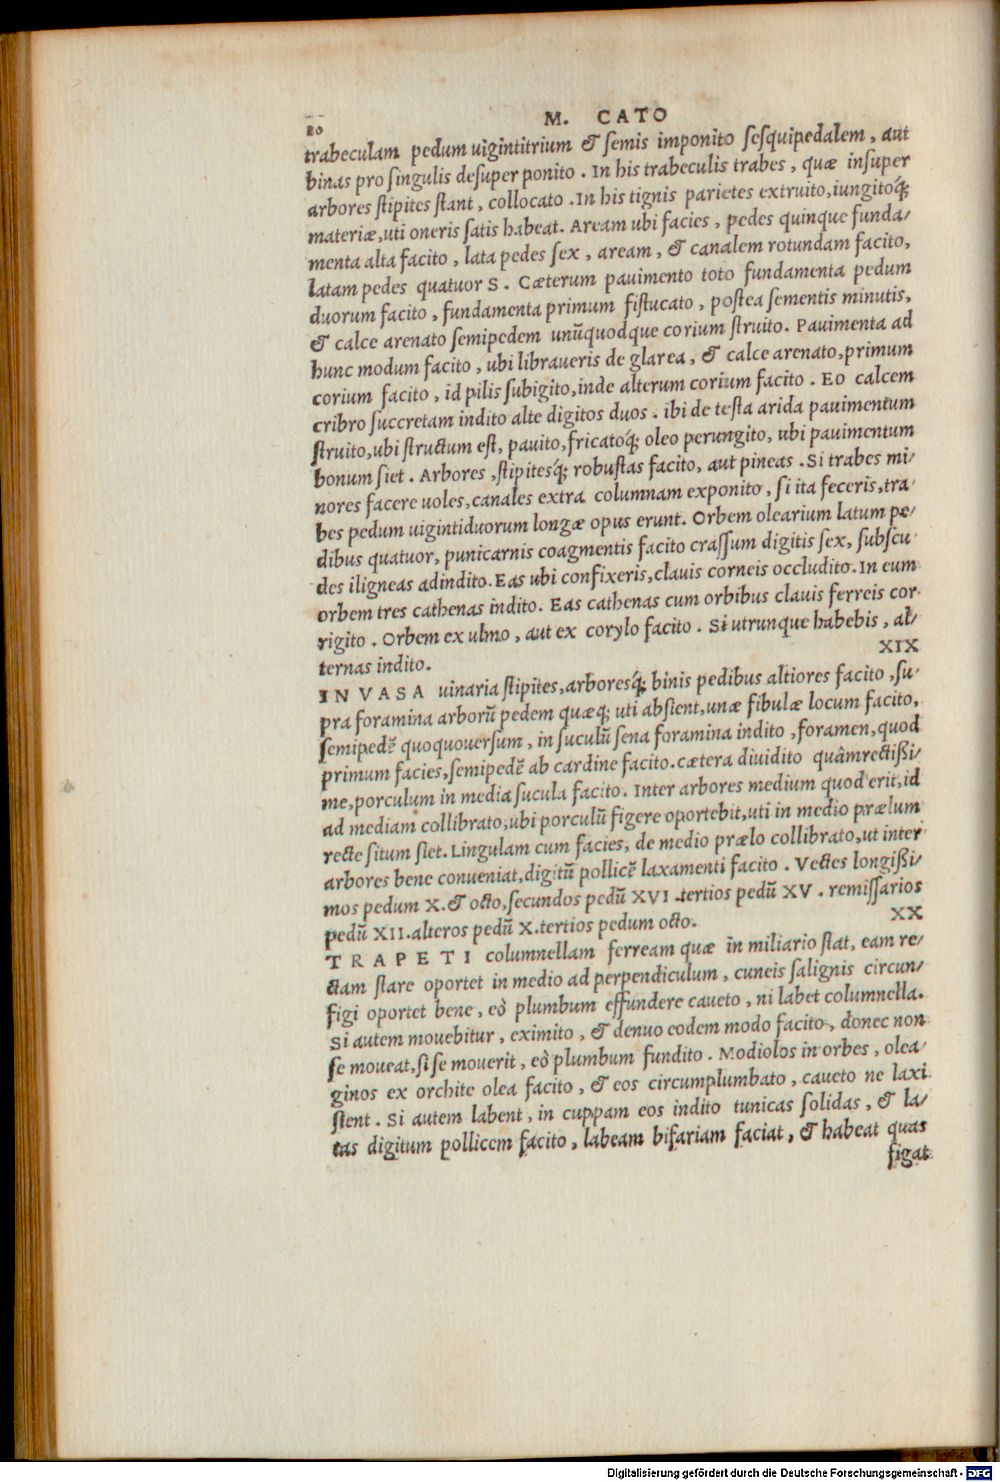 M. CATO
20
trabeculam pedum uigintitrium & semis imponito sesquipedalem, aut
binas pro singulis desuper ponito. In his trabeculis trabes, quæ insuper
arbores stipites stant, collocato. In his tignis parietes extruito, iungitoq́;
materiæ, uti oneris satis habeat. Aream ubi facies, pedes quinque funda/
menta alta facito, lata pedes sex, aream, & canalem rotundam facito,
latam pedes quatuor S. Cæterum pauimento toto fundamenta pedum
duorum facito, fundamenta primum fistucato, postea sementis minutis,
& calce arenato semipedem unũquodque corium struito. Pauimenta ad
hunc modum facito, ubi libraueris de glarea, & calce arenato, primum
corium facito, id pilis subigito, inde alterum corium facito. Eo calcem
cribro succretam indito alte digitos duos. ibi de testa arida pauimentum
struito, ubi structum est, pauito, fricatoq́; oleo perungito, ubi pauimentum
bonum siet. Arbores, stipitesq́; robustas facito, aut pineas. Si trabes mi/
nores facere uoles, canales extra columnam exponito, si ita feceris, tra/
bes pedum uigintiduorum longæ opus erunt. Orbem olearium latum pe/
dibus quatuor, punicarnis coagmentis facito crassum digitis sex, subscu/
des iligneas adindito. Eas ubi confixeris, clauis corneis occludito. In eum
orbem tres cathenas indito. Eas cathenas cum orbibus clauis ferreis cor/
rigito. Orbem ex ulmo, aut ex corylo facito. Si utrunque habebis, al/
ternas indito.
XIX
IN VASA uinaria stipites, arboresq́; binis pedibus altiores facito, su/
pra foramina arborũ pedem quæq; uti absient, unæ fibulæ locum facito,
semipedẽ quoquouersum, in suculũ sena foramina indito, foramen, quod
primum facies, semipedẽ ab cardine facito. cætera diuidito quâmrectißi/
me, porculum in media sucula facito. Inter arbores medium quod erit, id
ad mediam collibrato, ubi porculũ figere oportebit, uti in medio prælum
recte situm siet. Lingulam cum facies, de medio prælo collibrato, ut inter
arbores bene conueniat, digitũ pollicẽ laxamenti facito. Vectes longißi/
mos pedum X. & octo, secundos pedũ XVI. tertios pedũ XV. remissarios
pedũ XII. alteros pedũ X. tertios pedum octo.
XX
TRAPETI columnellam ferream quæ in miliario stat, eam re/
ctam stare oportet in medio ad perpendiculum, cuneis salignis circun/
figi oportet bene, eò plumbum effundere caueto, ni labet columnella.
Si autem mouebitur, eximito, & denuo eodem modo facito, donec non
se moueat, si se mouerit, eò plumbum fundito. Modiolos in orbes, olea/
ginos ex orchite olea facito, & eos circumplumbato, caueto ne laxi
sient. Si autem labent, in cuppam eos indito tunicas solidas, & la/
tas digitum pollicem facito, labeam bifariam faciat, & habeat quas
figat
Digitalisierung gefördert durch die Deutsche Forschungsgemeinschaft - DFG